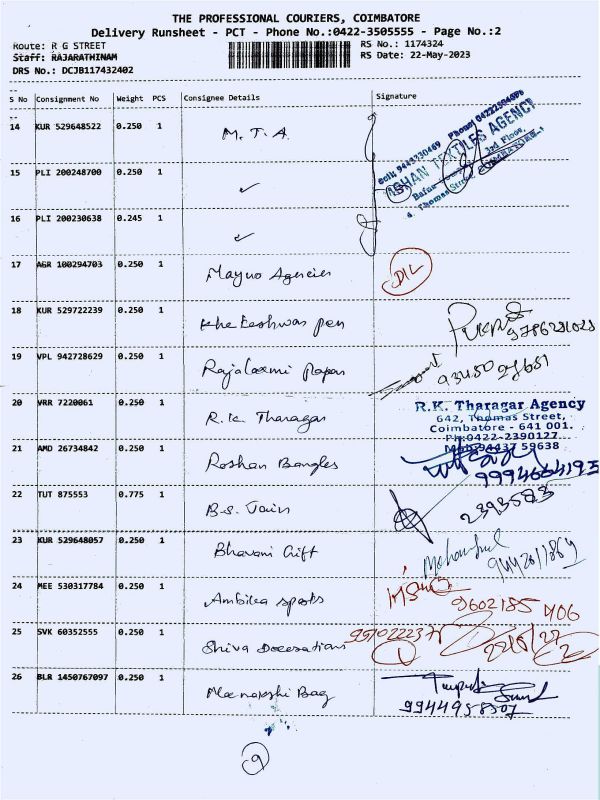 THE PROFESSIONAL COURIERS, COIMBATORE
Delivery Runsheet - PCT - Phone No.:0422-3505555 - Page No.:2
Route: R G STREET
RS No.: 1174324
Staff: RAJARATHINAM
RS Date: 22-May-2023
DRS No.: DCJB117432402
S No Consignment No Weight PCS Consignee Details Signature
14 KUR 529648522 0.250 1 M.T.A.
15 PLI 200248700 0.250 1 ✓
16 PLI 200230638 0.245 1 ✓
TEXTILES AGENCY
2nd Floor,
Thomas Street,
17 AGR 100294703 0.250 1 Mayuo Agencies DIL
18 KUR 529722239 0.250 1 Kheteshwar pen
19 VPL 942728629 0.250 1 Rajalaxmi Papar
20 VRR 7220061 0.250 1 R.K. Tharagar
R.K. Tharagar Agency
642, Thomas Street,
Coimbatore - 641 001.
Ph:0422-2390127
21 AMD 26734842 0.250 1 Roshan Bangles 9994664193
22 TUT 875553 0.775 1 B.S. Jain 2393583
23 KUR 529648057 0.250 1 Bhavani Gift
24 MEE 530317784 0.250 1 Ambika sports 9602185406
25 SVK 60352555 0.250 1 Shiva Decoration
26 BLR 1450767097 0.250 1 Meenakshi Bag 9944958507
9